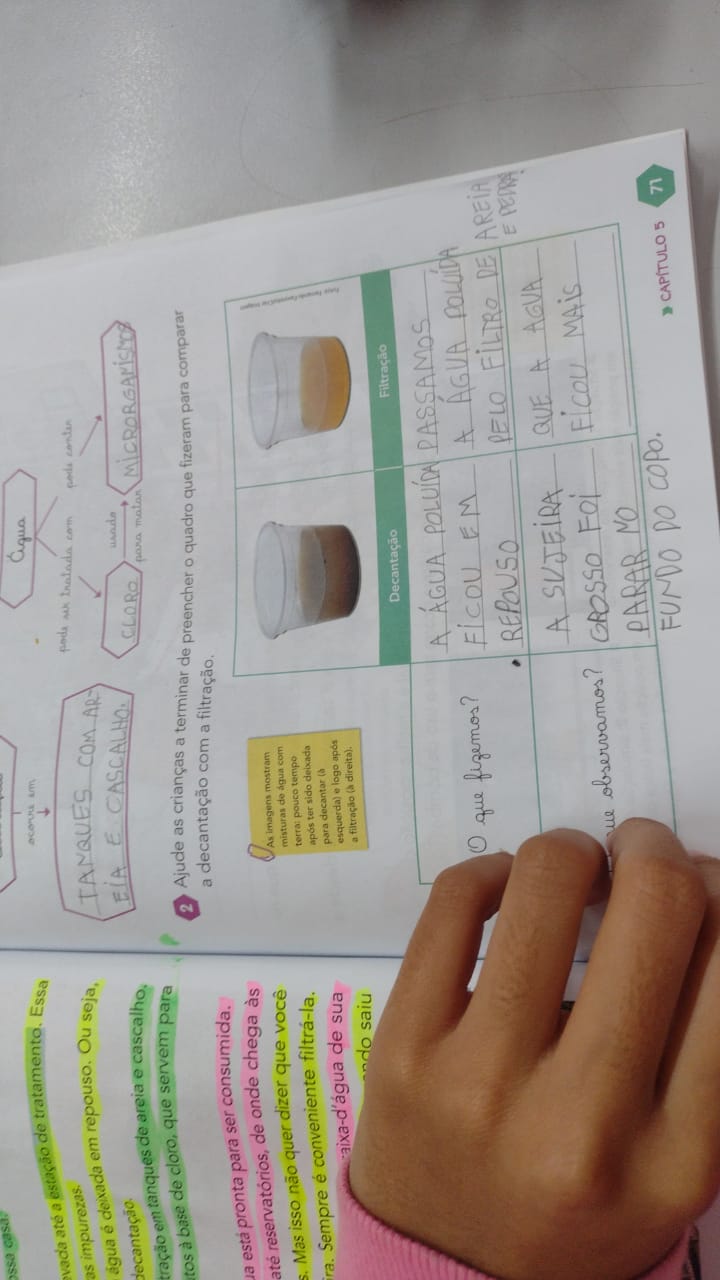 ossa casa?
evada até a estação de tratamento. Essa
as impurezas.
água é deixada em repouso. Ou seja,
decantação.
tração em tanques de areia e cascalho,
tos à base de cloro, que servem para
ua está pronta para ser consumida.
até reservatórios, de onde chega às
s. Mas isso não quer dizer que você
ira. Sempre é conveniente filtrá-la.
caixa-d'água de sua
ndo saiu
ocorre em
TANQUES COM AR-
EIA E CASCALHO.
Água
pode ser tratada com
pode conter
CLORO
usado
para matar
MICRORGANISMOS
2 Ajude as crianças a terminar de preencher o quadro que fizeram para comparar
a decantação com a filtração.
As imagens mostram
misturas de água com
terra: pouco tempo
após ter sido deixada
para decantar (à
esquerda) e logo após
a filtração (à direita).
Decantação
Filtração
O que fizemos?
A ÁGUA POLUÍDA
FICOU EM
REPOUSO
PASSAMOS
A ÁGUA POLUÍDA
PELO FILTRO DE AREIA
E PEDRA.
que observamos?
A SUJEIRA
GROSSO FOI
PARAR NO
FUNDO DO COPO.
QUE A AGUA
FICOU MAIS
CAPÍTULO 5
71